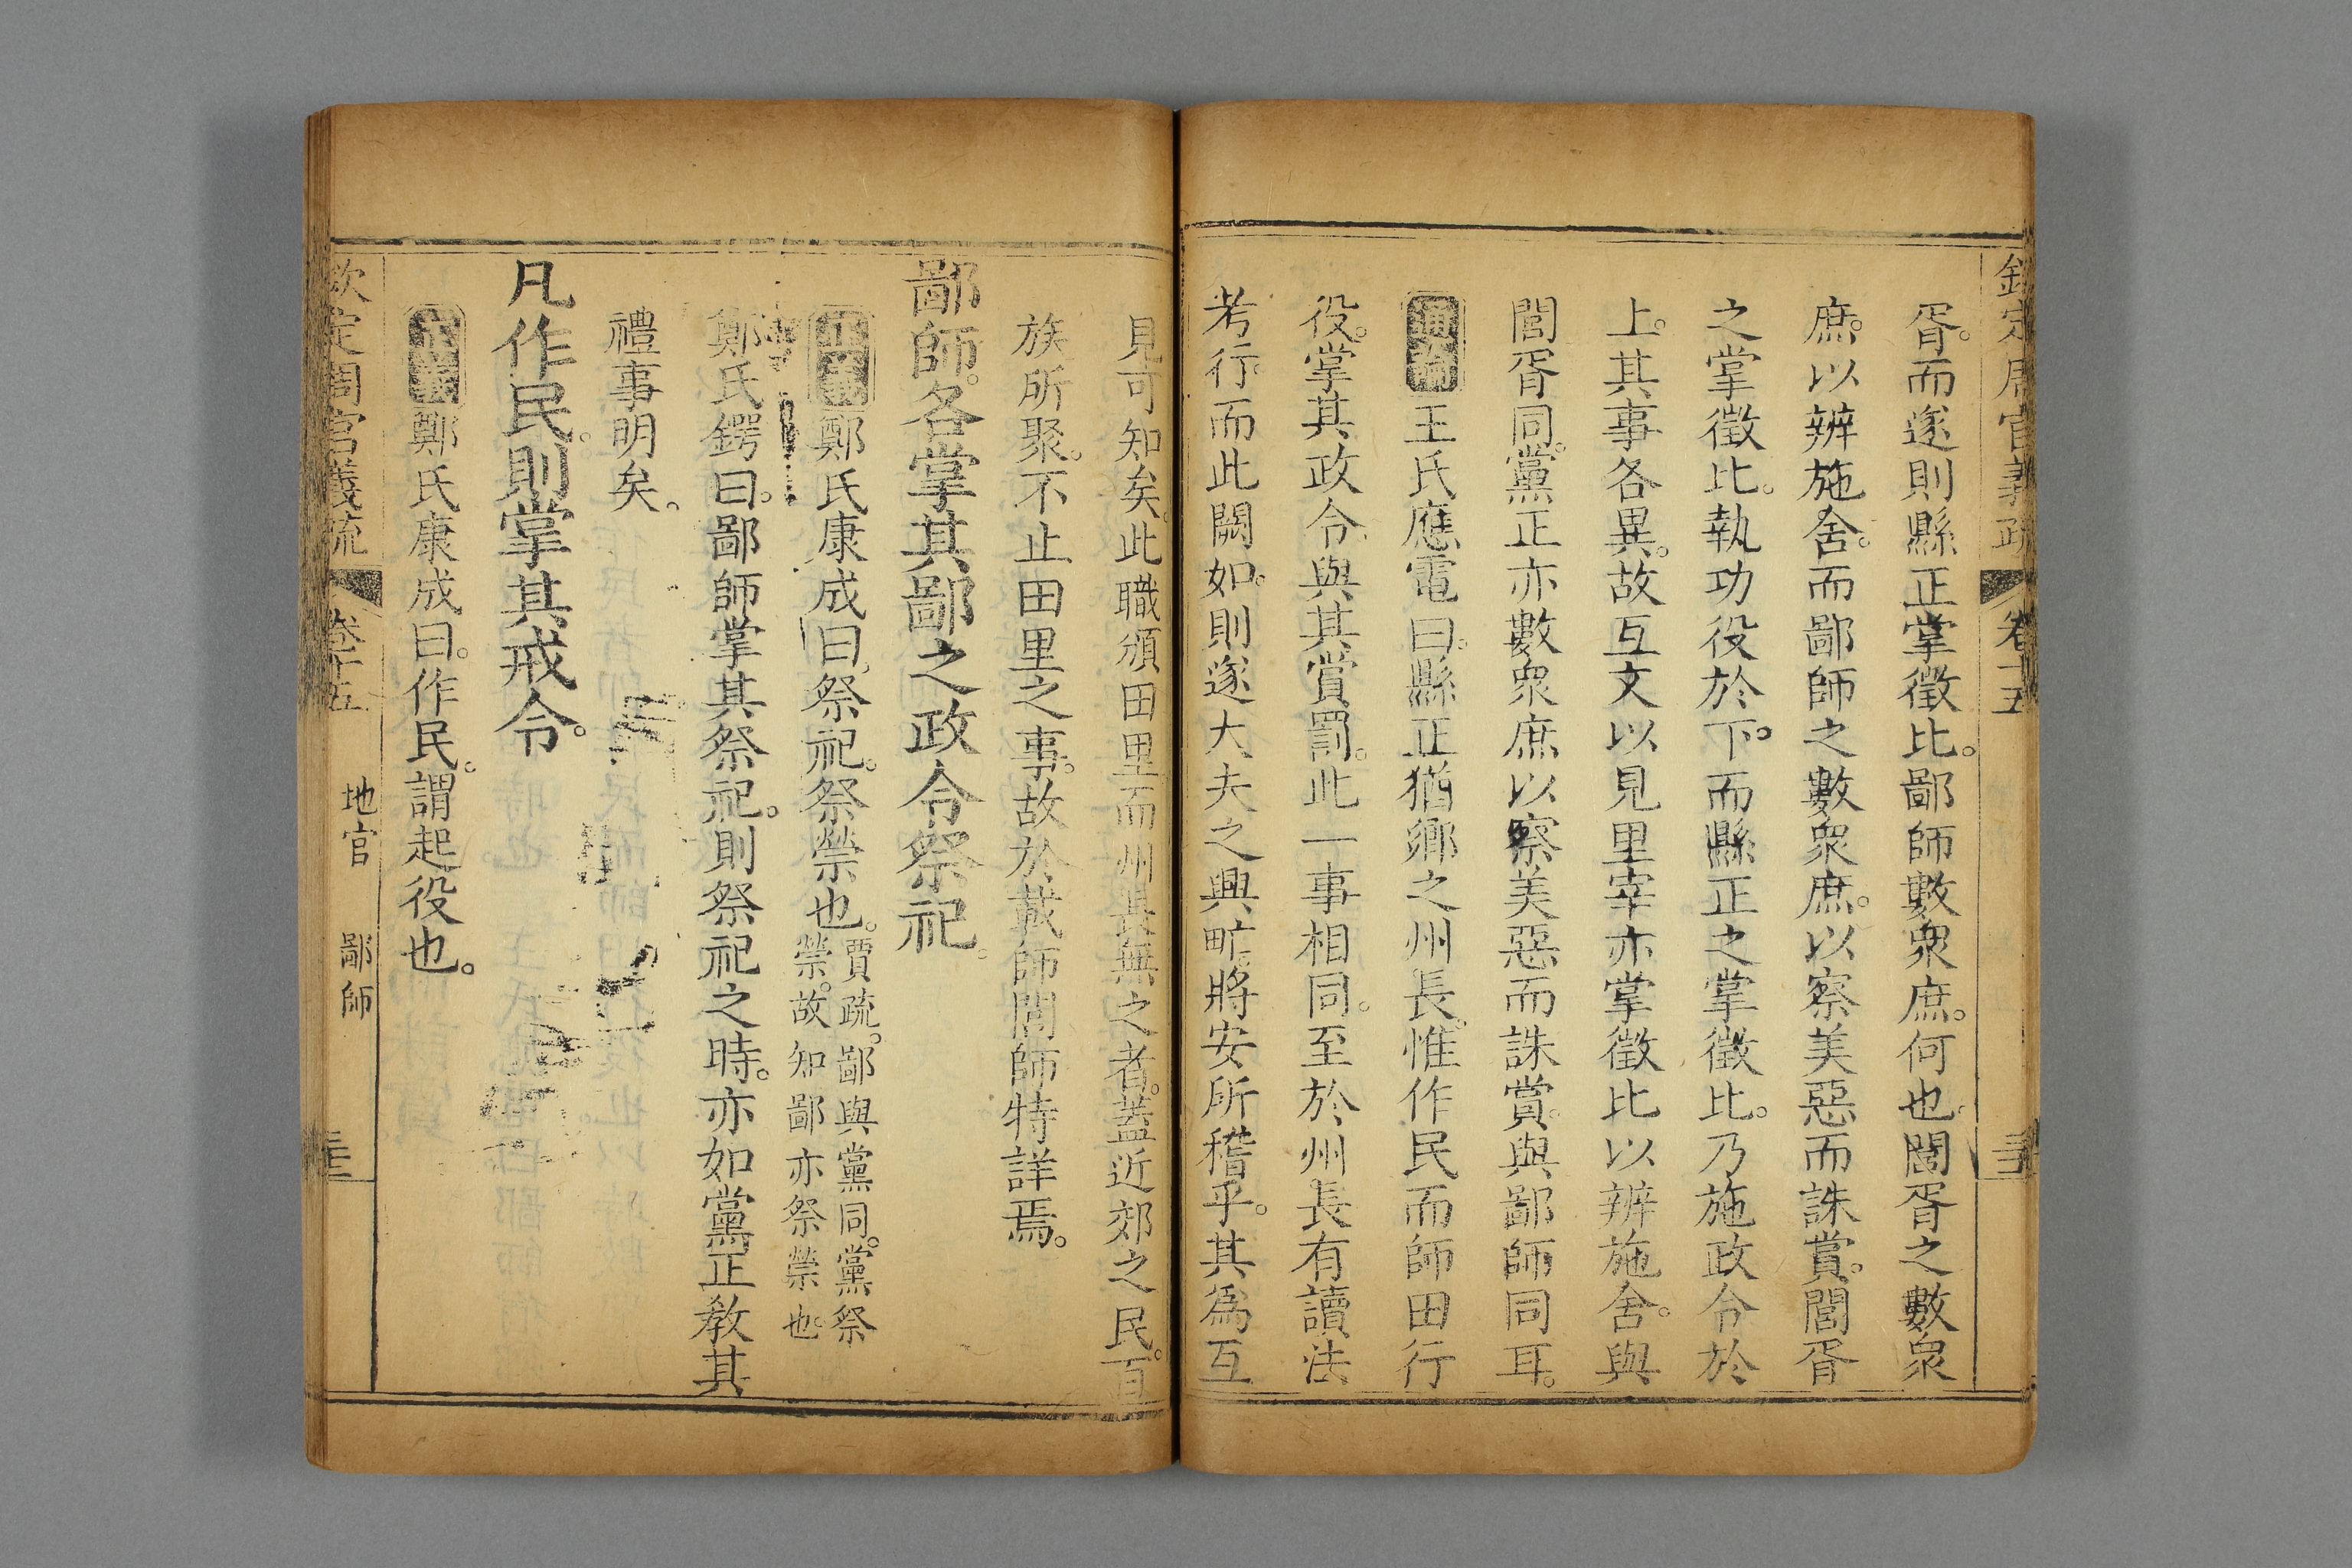 欽定周官義疏 卷十五
胥。而遂則縣正掌徵比。鄙師數衆庶。何也。閭胥之數衆
庶。以辨施舍。而鄙師之數衆庶。以察美惡而誅賞。閭胥
之掌徵比。執功役於下。而縣正之掌徵比。乃施政令於
上。其事各異。故互文以見里宰亦掌徵比以辨施舍。與
閭胥同。黨正亦數衆庶以察美惡而誅賞。與鄙師同耳。
通論王氏應電曰。縣正猶鄉之州長。惟作民而師田行
役。掌其政令。與其賞罰。此一事相同。至於州長有讀法
考行。而此闕如。則遂大夫之興甿。將安所稽乎。其爲互
見可知矣。此職頒田里而州長無之者。蓋近郊之民。百
族所聚。不止田里之事。故於載師閭師特詳焉。
鄙師。各掌其鄙之政令祭祀。
正義鄭氏康成曰。祭祀。祭禜也。賈疏。鄙與黨同。黨祭
禜。故知鄙亦祭禜也。
鄭氏鍔曰。鄙師掌其祭祀。則祭祀之時。亦如黨正教其
禮事明矣。
凡作民。則掌其戒令。
正義鄭氏康成曰。作民。謂起役也。
欽定周官義疏 卷十五 地官 鄙師